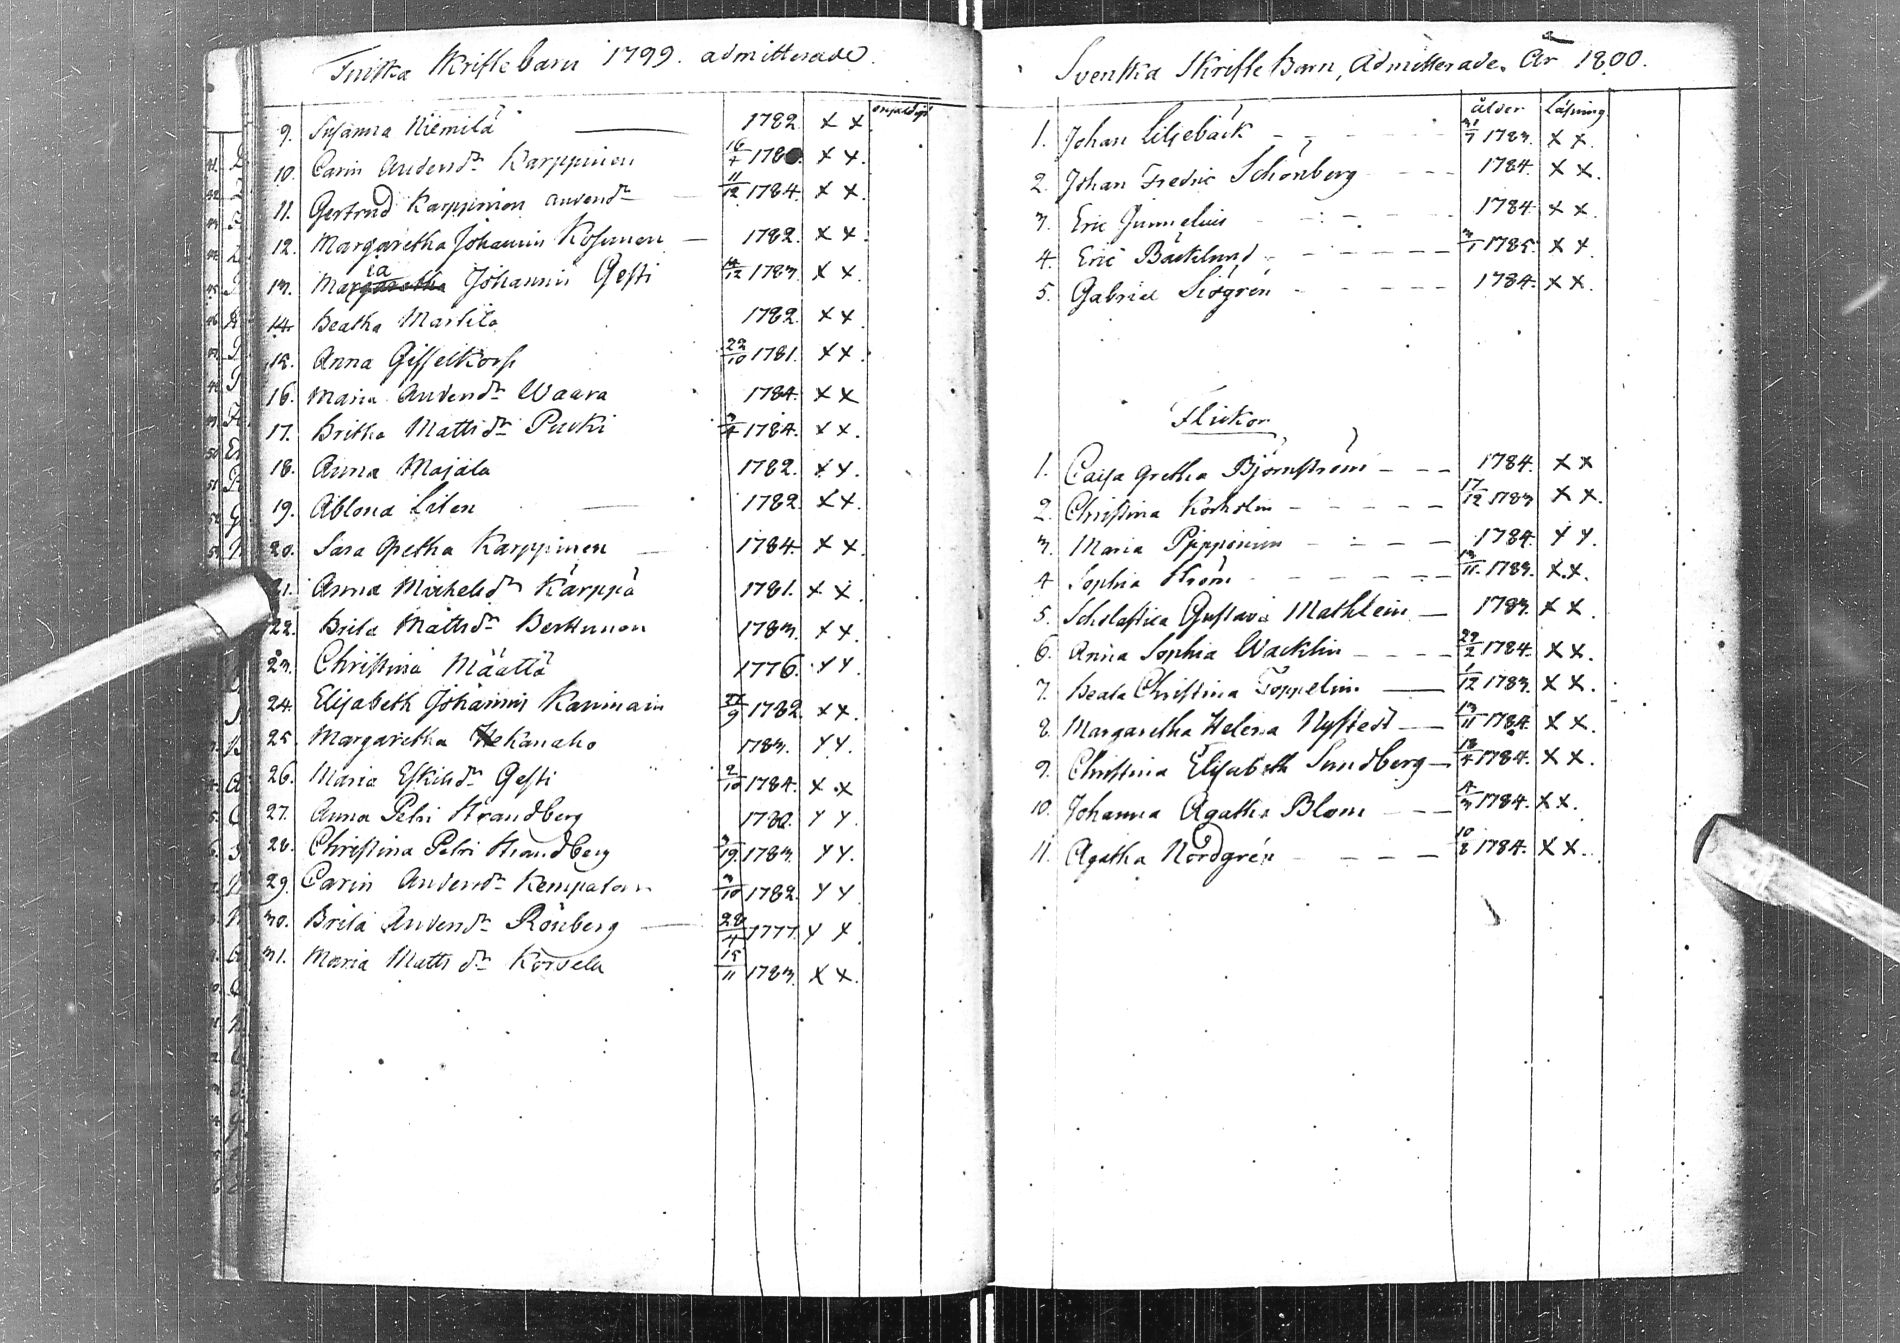 Finska Skriftebarn 1799. admitterade.
9. Susanna Niemilä 1782. x x.
10. Carin Andersdr Karppinen 16/7 178 x x.
11. Gertrud Karppinen andersdr 11/12 1784. x x.
12. Margaretha Johannis Kosunen 1782. x x.
13. Maria Johannis Gesti /12 1783. x x.
14. Beatha Martila 1782 x x.
15. Anna Gisselkors 22/10 1781. x x.
16. Maria Andersdr Waara 1784. x x
17. Britha Mattsdr Purki 3/4 1784. x x.
18. Anna Majala 1782. x x.
19. Ablona Liten 1782. x x.
20. Sara Gretha Karppinen 1784. x x.
21. Anna Michelsdr Kärppä 1781. x x.
22. Brita Mattsdr Berttunen 1783. x x.
23. Christina Määttä 1776. x x.
24. Elisabeth Johannis 9 1782. x x.
25. Margaretha Hekanaho 1783. x x.
26. Maria Eskilsdr Gesti 2/10 1784. x x
27. Anna Petri Strandberg 1780. x x.
28. Christina Petri Strandberg 1783. x x.
29. Carin Andersdr 3/10 1782. x x
30. Brita Andersdr Rönberg 28/4 1777. x x.
31. Maria Mattsdr Korvela 15/11 1783. x x.
Svenska Skrifte Barn, Admitterade. År 1800.
ålder Läsning
1. Johan Liljebäck 31/7 1783. x x.
2. Johan Fredric Schönberg 1784. x x.
3. Eric Junnelius 1784. x x.
4. Eric Bäcklund 3/1 1785. x x.
5. Gabriel Siögrén 1784. x x.
Flickor
1. Caisa Gretha Björnström 1784. x x
2. Christina 17/12 1783 x x.
3. Maria Pippinen 1784. x x.
4. Sophia Ström 13/11 1783. x x.
5. Scholastica Gustava Mathlein 1783. x x.
6. Anna Sophia Wacklin 29/2 1784. x x.
7. Beata Christina Toppelin 1/12 1783. x x.
8. Margaretha Helena Nystedt 13/11 1784. x x.
9. Christina Elisabeth Sundberg 18/4 1784. x x.
10. Johanna Agatha Blom 4/3 1784. x x.
11. Agatha Nordgrén 10/8 1784. x x.